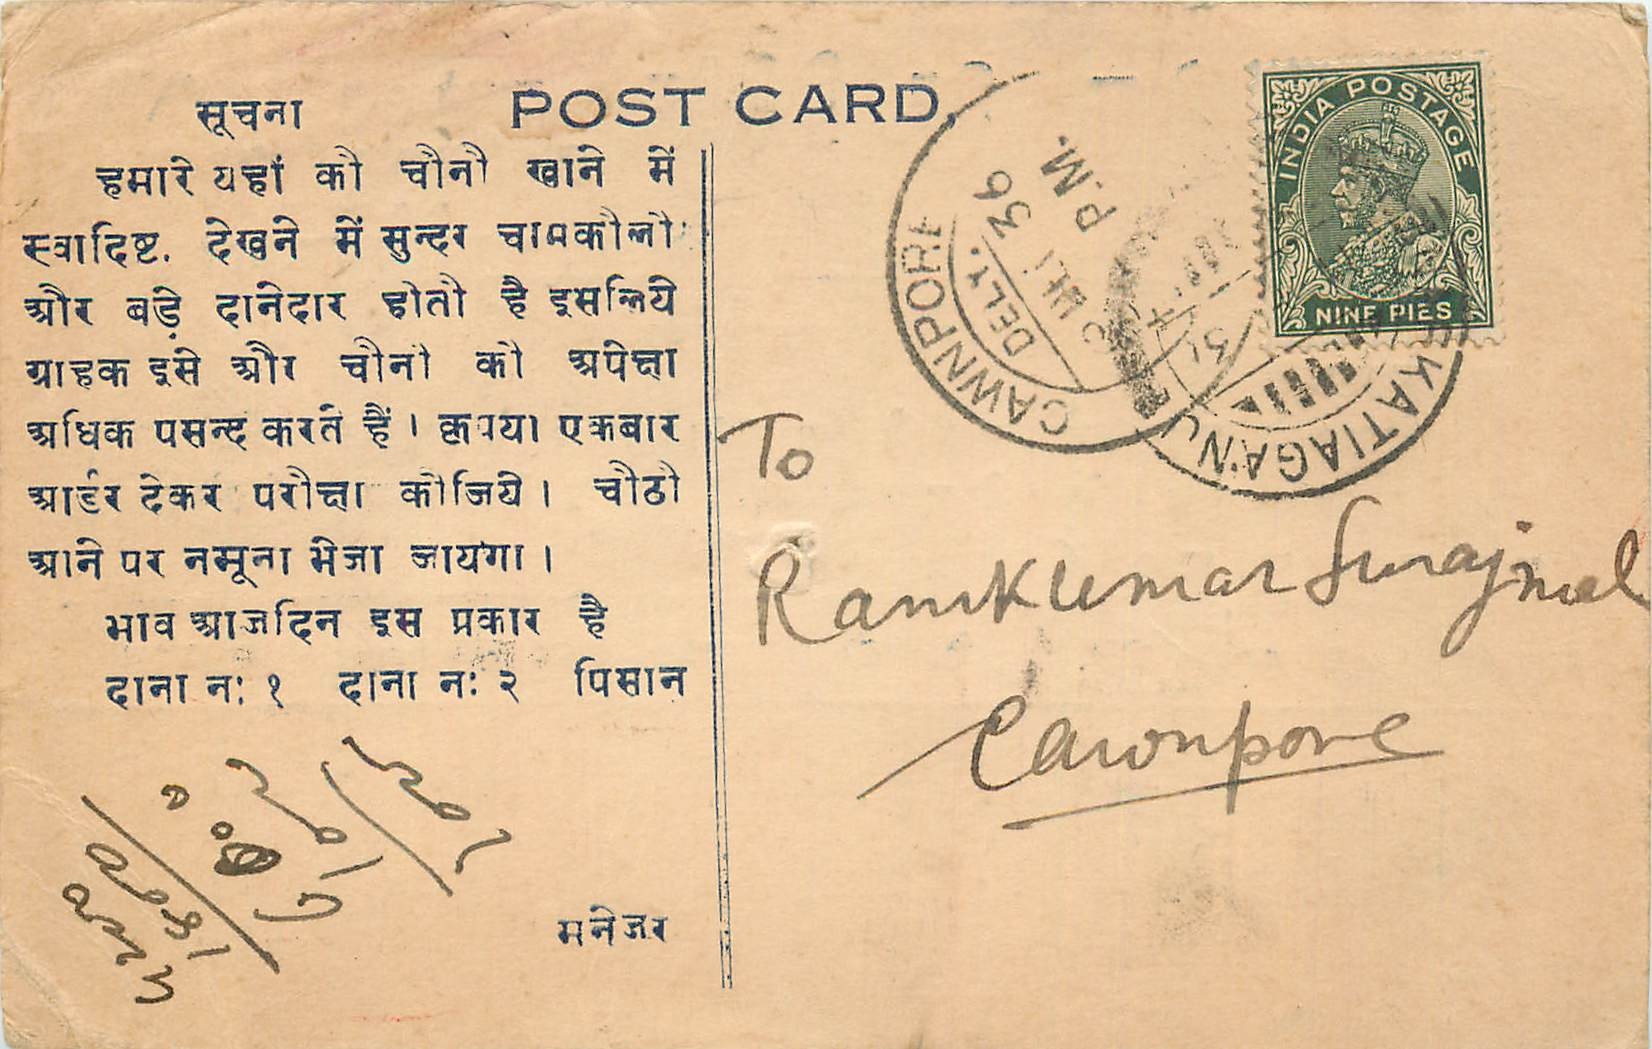 POST CARD
सूचना
हमारे यहां की चीनी खाने में
स्वादिष्ट. देखने में सुन्दर चमकीली
और बड़े दानेदार होती है इसलिये
ग्राहक इसे और चीनी की अपेक्षा
अधिक पसन्द करते हैं। कृपया एकबार
आर्डर देकर परीक्षा कीजिये। चीठी
आने पर नमूना भेजा जायगा।
भाव आजदिन इस प्रकार है
दाना न: १ दाना न: २ पिसान
मनेजर
INDIA POSTAGE
NINE PIES
CAWNPORE
DELY.
36
P.M.
KATIAGANJ
To
Ramkumar Surajmal
Cawnpore